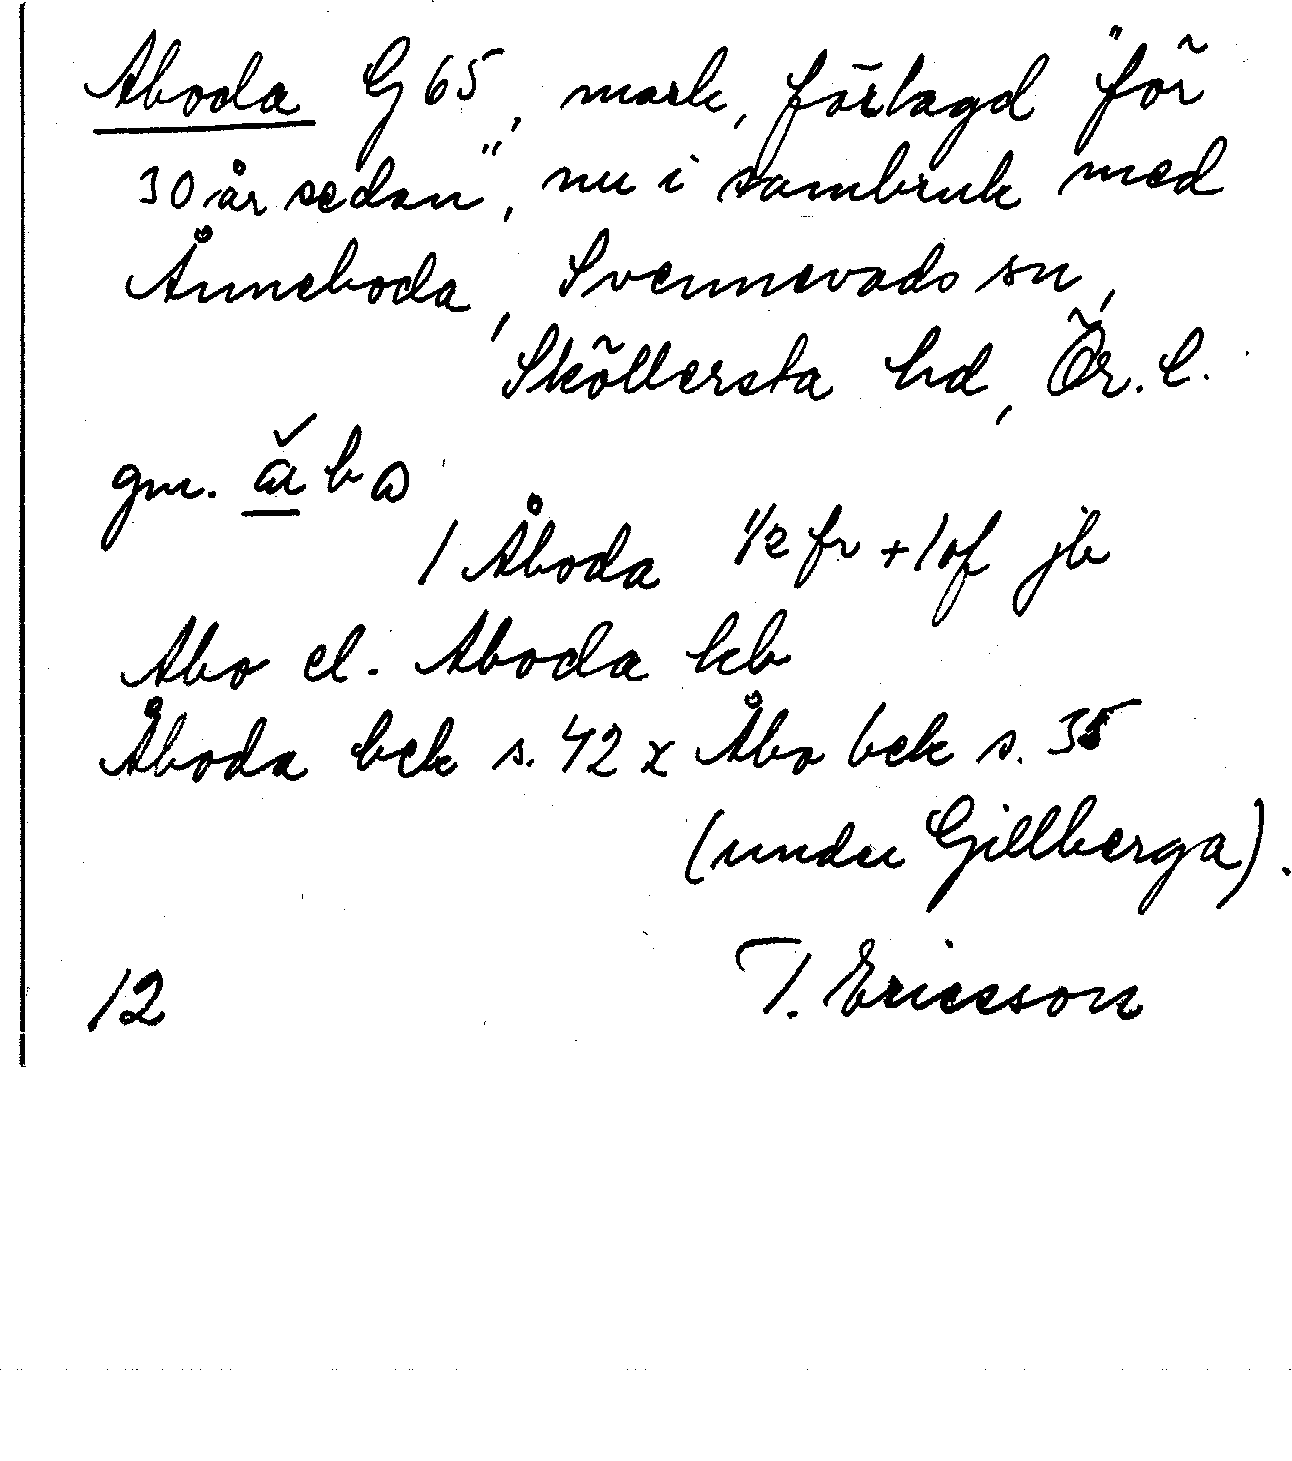 Aboda G 65, mark, förlagd "för
30 år sedan", nu i sambruk med
Ånneboda, Svennevads sn,
Sköllersta hd, Ör. l.
gm. å b o
1 Åboda 1/2 fr + 1 of jb
Abo el. Aboda kb
Åboda bek s. 42 x Åbo bek s. 35
(under Gillberga).
12 T. Ericsson